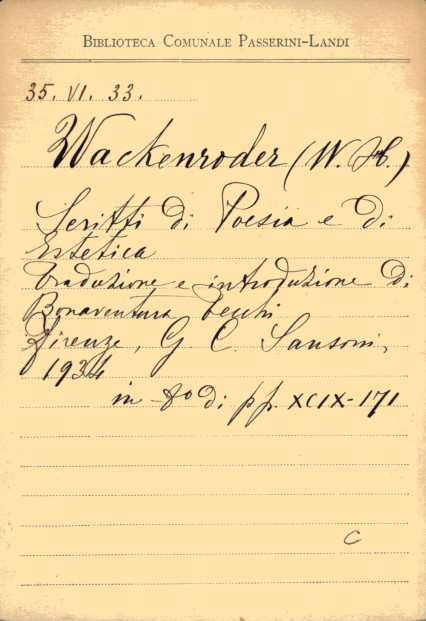 BIBLIOTECA COMUNALE PASSERINI-LANDI
35. VI. 33.
Wackenroder (W. H.)
Scritti di Poesia e di
Estetica
Traduzione e introduzione di
Bonaventura Tecchi
Firenze, G C. Sansoni,
1934
in -8º di pp. XCIX-171
C